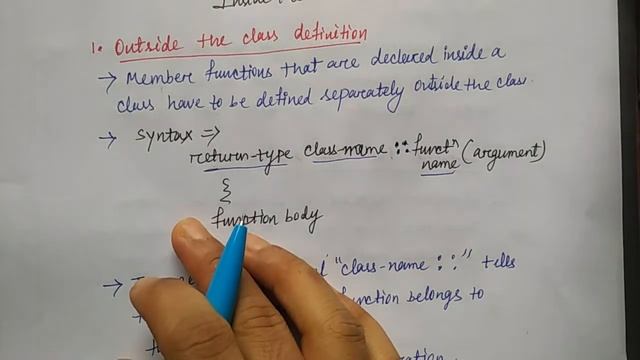 1. Outside the class definition
→ Member functions that are declared inside a
class have to be defined separately outside the class.
→ syntax ⇒
return-type class-name :: functn name (argument)
{
function body
→ "class-name ::" tells
function belongs to